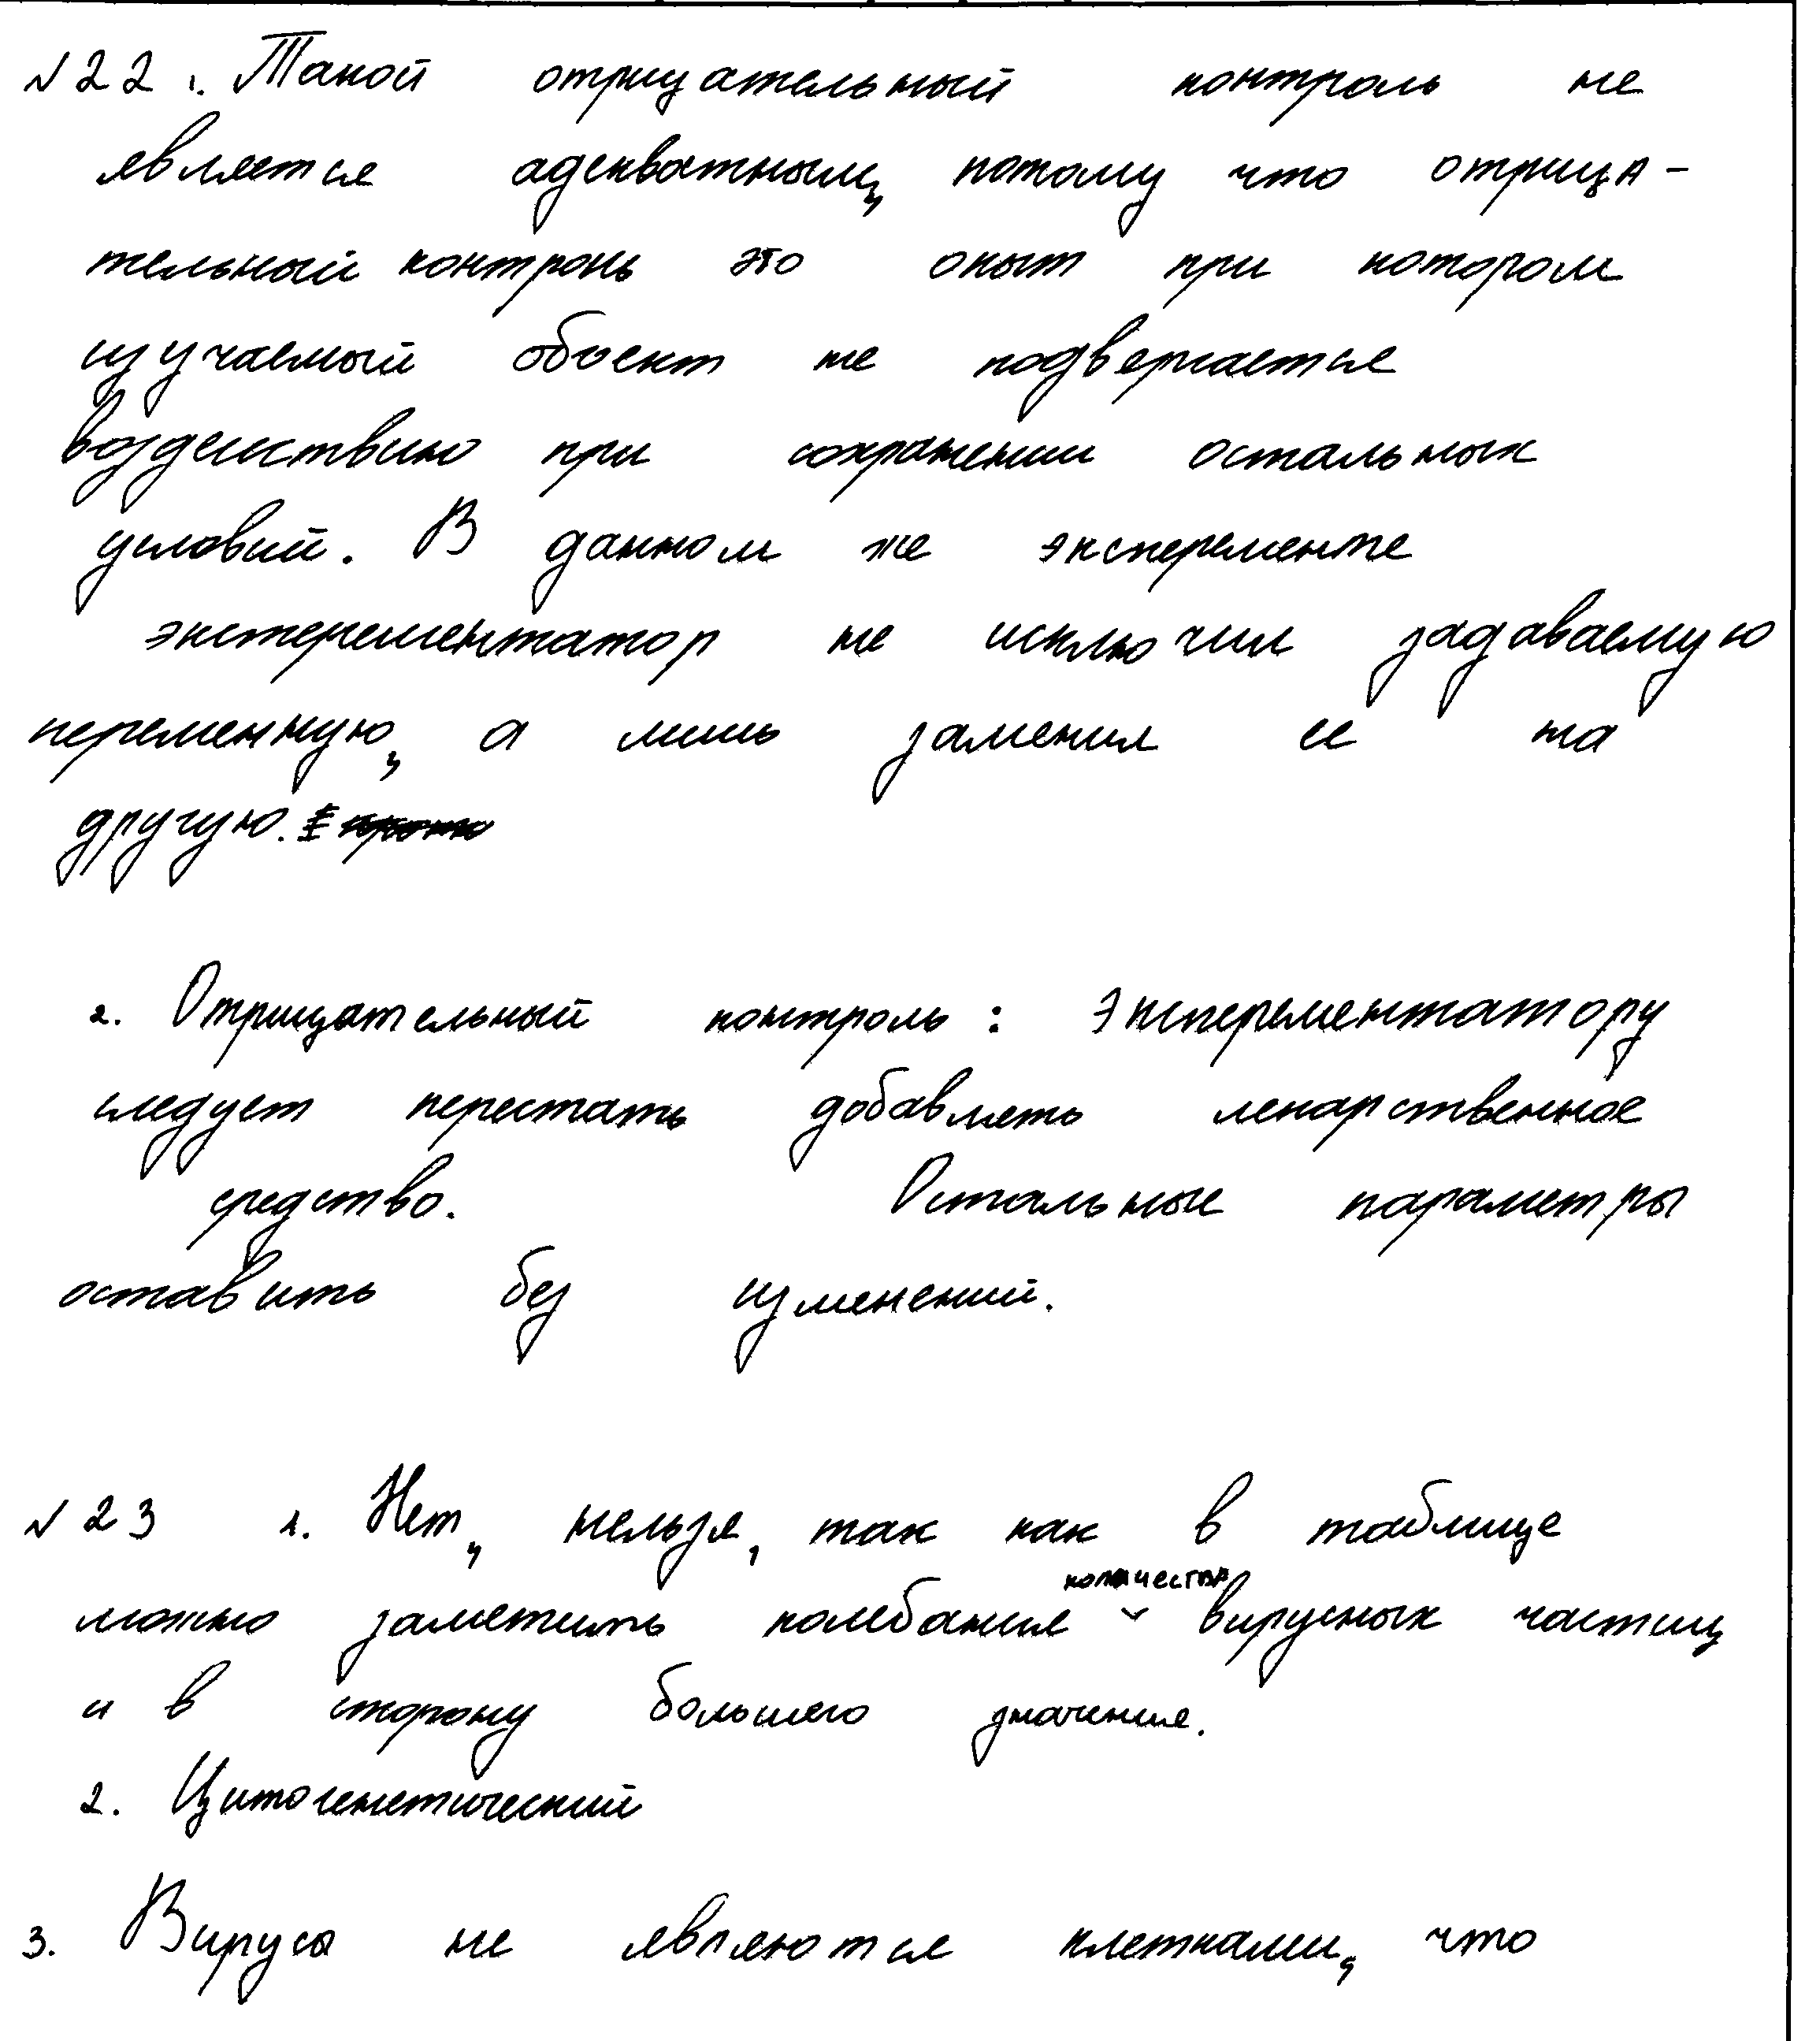 №22 1. Такой отрицательный контроль не
является адекватным, потому что отрица-
тельный контроль это опыт при котором
изучаемый объект не подвергается
воздействию при сохранении остальных
условий. В данном же эксперементе
эксперементатор не исключил задаваемую
переменную, а лишь заменил ее на
другую.
2. Отрицательный контроль: Эксперементатору
следует перестать добавлять лекарственное
средство. Остальные параметры
оставить без изменений.
№23 1. Нет, нельзя, так как в таблице
можно заметить колебания количества вирусных частиц
и в сторону большего значения.
2. Цитогенетический
3. Вирусы не являются клетками, что